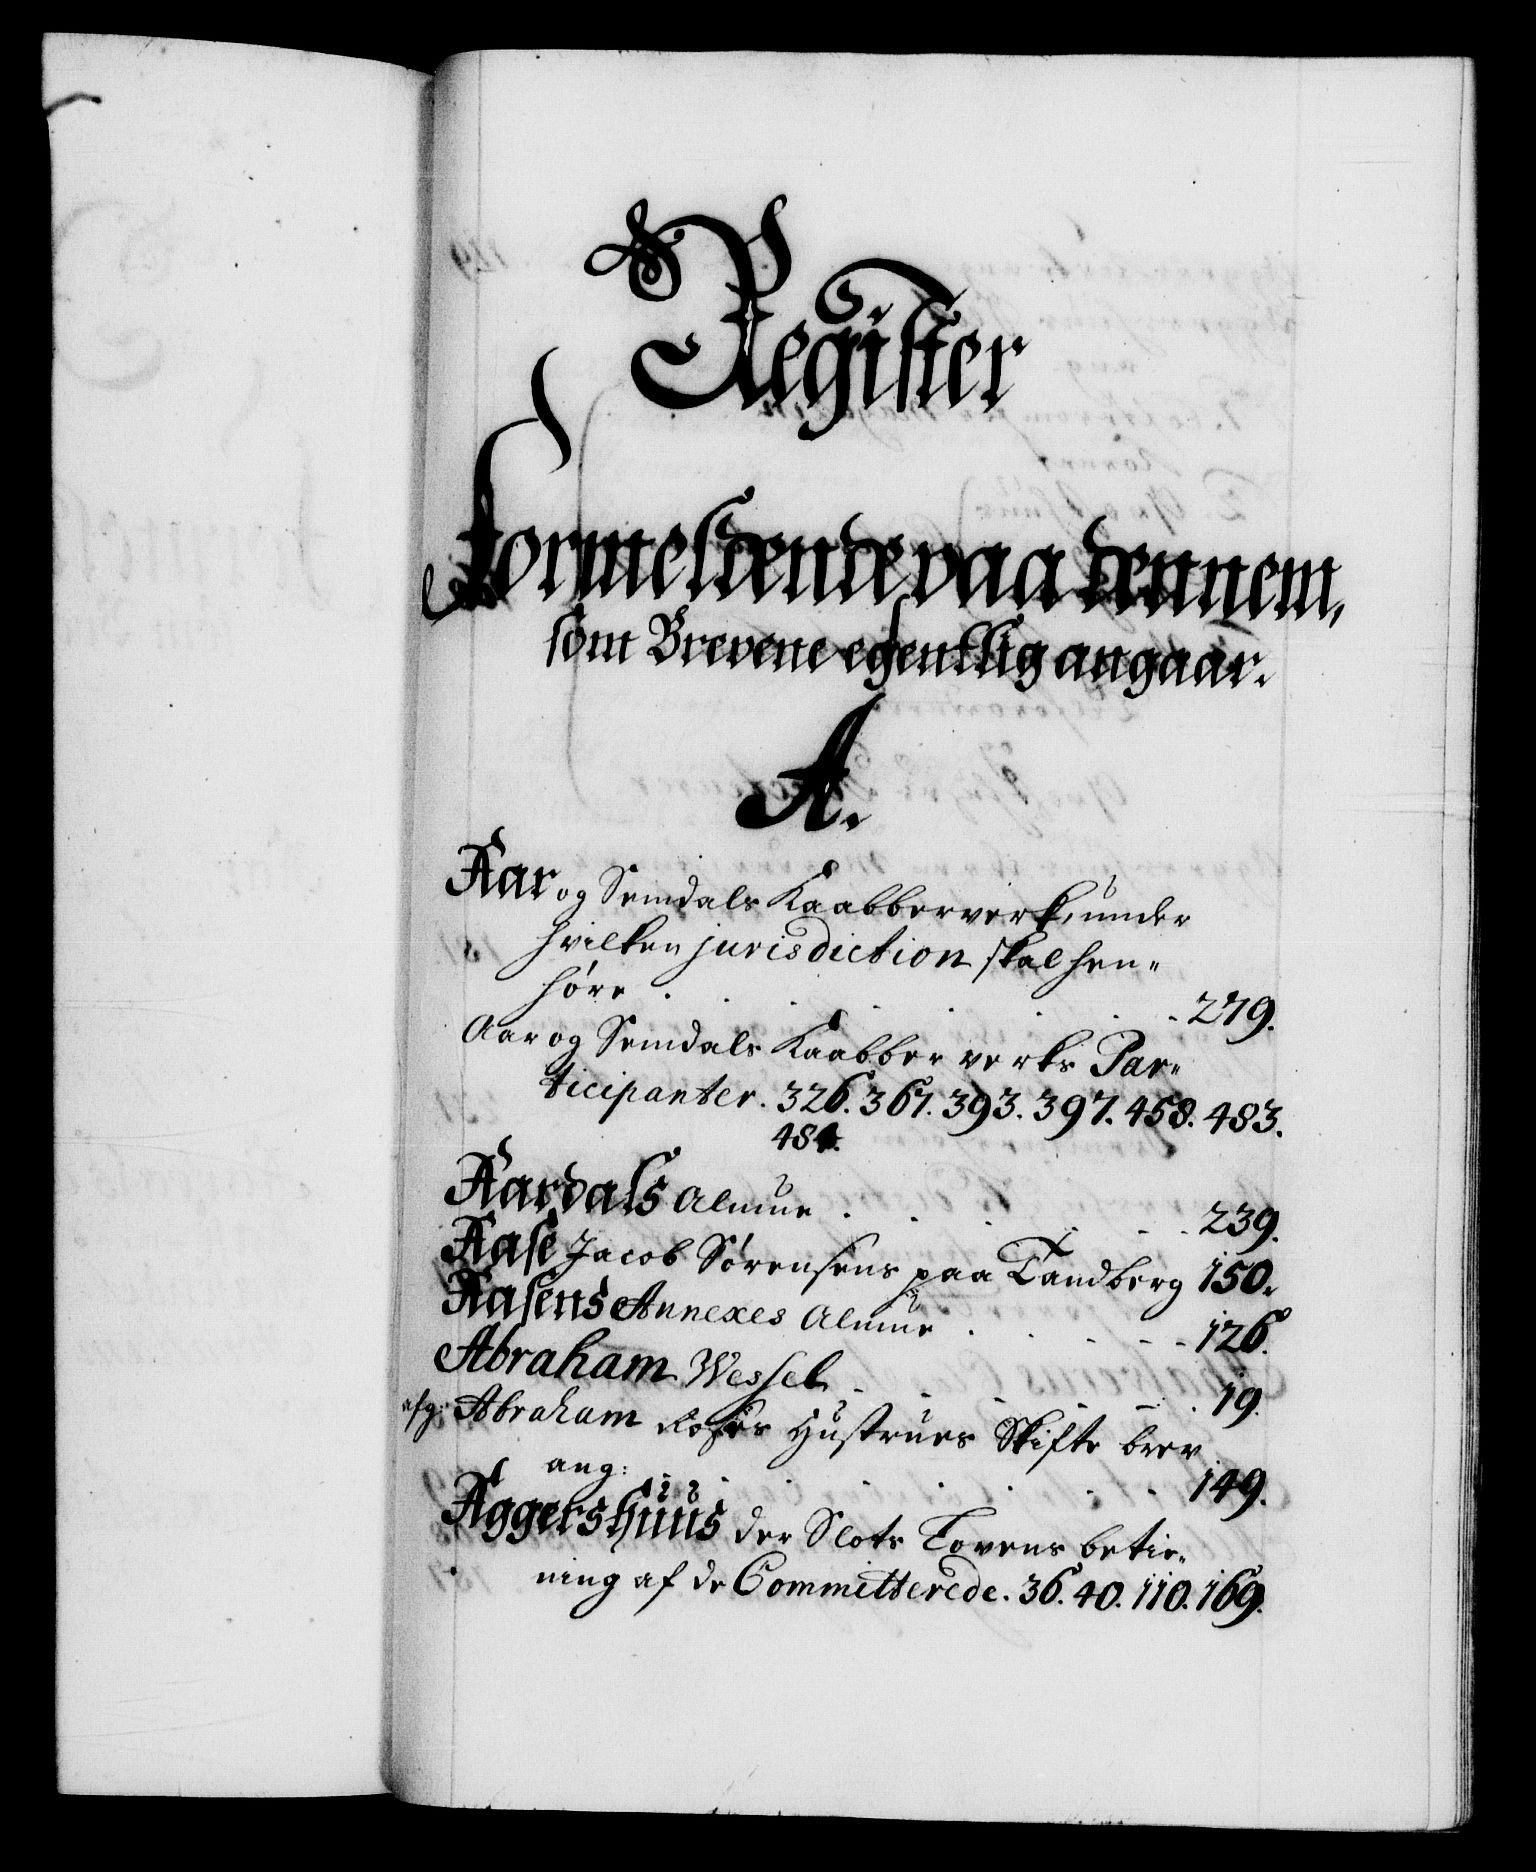 Register
Formeldende paa dennem,
som Brevene egentlig angaar.
A.
Aar og Semdals Kaabberverk, under
hvilken jurisdiction skal hen-
høre . . . . . . . 279.
Aar og Semdals Kaabber verks Par-
ticipanter. 326. 367. 393. 397. 458. 483.
484.
Aardals Almue . . . . . . 239.
Aase Jacob Sørensens paa Tandberg 150.
Aasens Annexes Almue . . . . . 126.
Abraham Wessel . . . . . . 19.
Abraham Hustrues Skifte brev
ang: . . . . . . . 149.
Aggershuus der Slots Lovens betie-
ning af de Committerede. 36. 40. 110. 169.